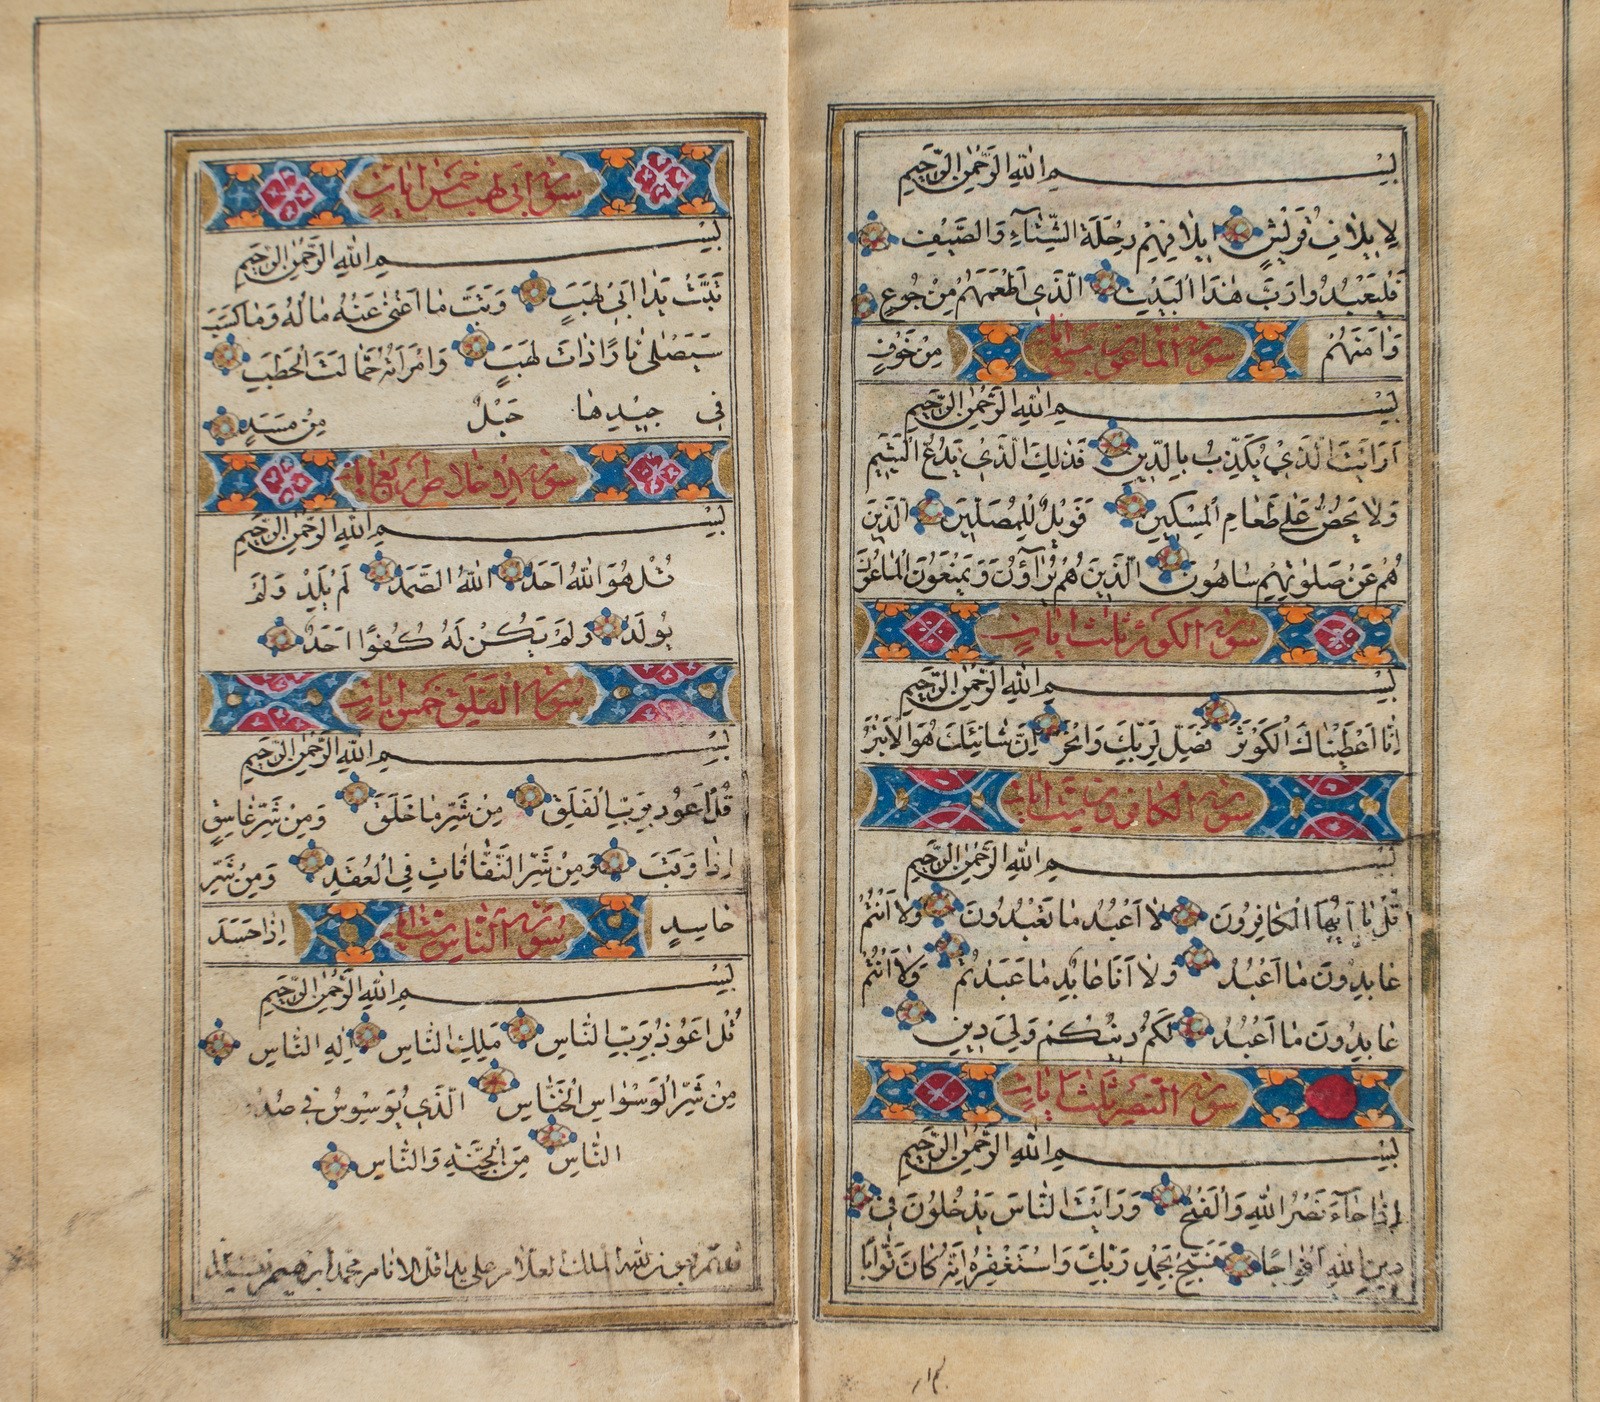 بِسْمِ اللّٰهِ الرَّحْمٰنِ الرَّحِيمِ
لِاِيلٰافِ قُرَيْشٍ اِيلٰافِهِمْ رِحْلَةَ الشِّتٰٓاءِ وَالصَّيْفِ
فَلْيَعْبُدُوا رَبَّ هٰذَا الْبَيْتِ الَّذٖي اَطْعَمَهُمْ مِنْ جُوعٍ
وَاٰمَنَهُمْ سورة الماعون سبع ايات مِنْ خَوْفٍ
بِسْمِ اللّٰهِ الرَّحْمٰنِ الرَّحِيمِ
اَرَاَيْتَ الَّذٖي يُكَذِّبُ بِالدّٖينِ فَذٰلِكَ الَّذٖي يَدُعُّ الْيَتٖيمَ
وَلٰا يَحُضُّ عَلٰى طَعٰامِ الْمِسْكٖينِ فَوَيْلٌ لِلْمُصَلّٖينَ الَّذٖينَ
هُمْ عَنْ صَلٰوتِهِمْ سٰاهُونَ الَّذٖينَ هُمْ يُرٰٓاؤُنَ وَيَمْنَعُونَ الْمٰاعُونَ
سورة الكوثر ثلث ايات
بِسْمِ اللّٰهِ الرَّحْمٰنِ الرَّحِيمِ
اِنّٰا اَعْطَيْنٰاكَ الْكَوْثَرَ فَصَلِّ لِرَبِّكَ وَانْحَرْ اِنَّ شٰانِئَكَ هُوَ الْاَبْتَرُ
سورة الكافرون ست ايات
بِسْمِ اللّٰهِ الرَّحْمٰنِ الرَّحِيمِ
قُلْ يٰٓا اَيُّهَا الْكٰافِرُونَ لٰا اَعْبُدُ مٰا تَعْبُدُونَ وَلٰا اَنْتُمْ
عٰابِدُونَ مٰا اَعْبُدُ وَلٰا اَنَا عٰابِدٌ مٰا عَبَدْتُمْ وَلٰا اَنْتُمْ
عٰابِدُونَ مٰا اَعْبُدُ لَكُمْ دٖينُكُمْ وَلِيَ دٖينِ
سورة النصر ثلث ايات
بِسْمِ اللّٰهِ الرَّحْمٰنِ الرَّحِيمِ
اِذٰا جٰٓاءَ نَصْرُ اللّٰهِ وَالْفَتْحُ وَرَاَيْتَ النّٰاسَ يَدْخُلُونَ فٖي
دٖينِ اللّٰهِ اَفْوٰاجًا فَسَبِّحْ بِحَمْدِ رَبِّكَ وَاسْتَغْفِرْهُ اِنَّهُ كٰانَ تَوّٰابًا
سورة ابى لهب خمس ايات
بِسْمِ اللّٰهِ الرَّحْمٰنِ الرَّحِيمِ
تَبَّتْ يَدٰا اَبٖي لَهَبٍ وَتَبَّ مٰا اَغْنٰى عَنْهُ مٰالُهُ وَمٰا كَسَبَ
سَيَصْلٰى نٰارًا ذٰاتَ لَهَبٍ وَامْرَاَتُهُ حَمّٰالَةَ الْحَطَبِ
فٖي جٖيدِهٰا حَبْلٌ مِنْ مَسَدٍ
سورة الاخلاص اربع ايات
بِسْمِ اللّٰهِ الرَّحْمٰنِ الرَّحِيمِ
قُلْ هُوَ اللّٰهُ اَحَدٌ اَللّٰهُ الصَّمَدُ لَمْ يَلِدْ وَلَمْ
يُولَدْ وَلَمْ يَكُنْ لَهُ كُفُوًا اَحَدٌ
سورة الفلق خمس ايات
بِسْمِ اللّٰهِ الرَّحْمٰنِ الرَّحِيمِ
قُلْ اَعُوذُ بِرَبِّ الْفَلَقِ مِنْ شَرِّ مٰا خَلَقَ وَمِنْ شَرِّ غٰاسِقٍ
اِذٰا وَقَبَ وَمِنْ شَرِّ النَّفّٰاثٰاتِ فِي الْعُقَدِ وَمِنْ شَرِّ
حٰاسِدٍ سورة الناس ست ايات اِذٰا حَسَدَ
بِسْمِ اللّٰهِ الرَّحْمٰنِ الرَّحِيمِ
قُلْ اَعُوذُ بِرَبِّ النّٰاسِ مَلِكِ النّٰاسِ اِلٰهِ النّٰاسِ
مِنْ شَرِّ الْوَسْوٰاسِ الْخَنّٰاسِ الَّذٖي يُوَسْوِسُ فٖي صُدُ
النّٰاسِ مِنَ الْجِنَّةِ وَالنّٰاسِ
الملك العلام على يد اقل الانام محمد ابرهيم